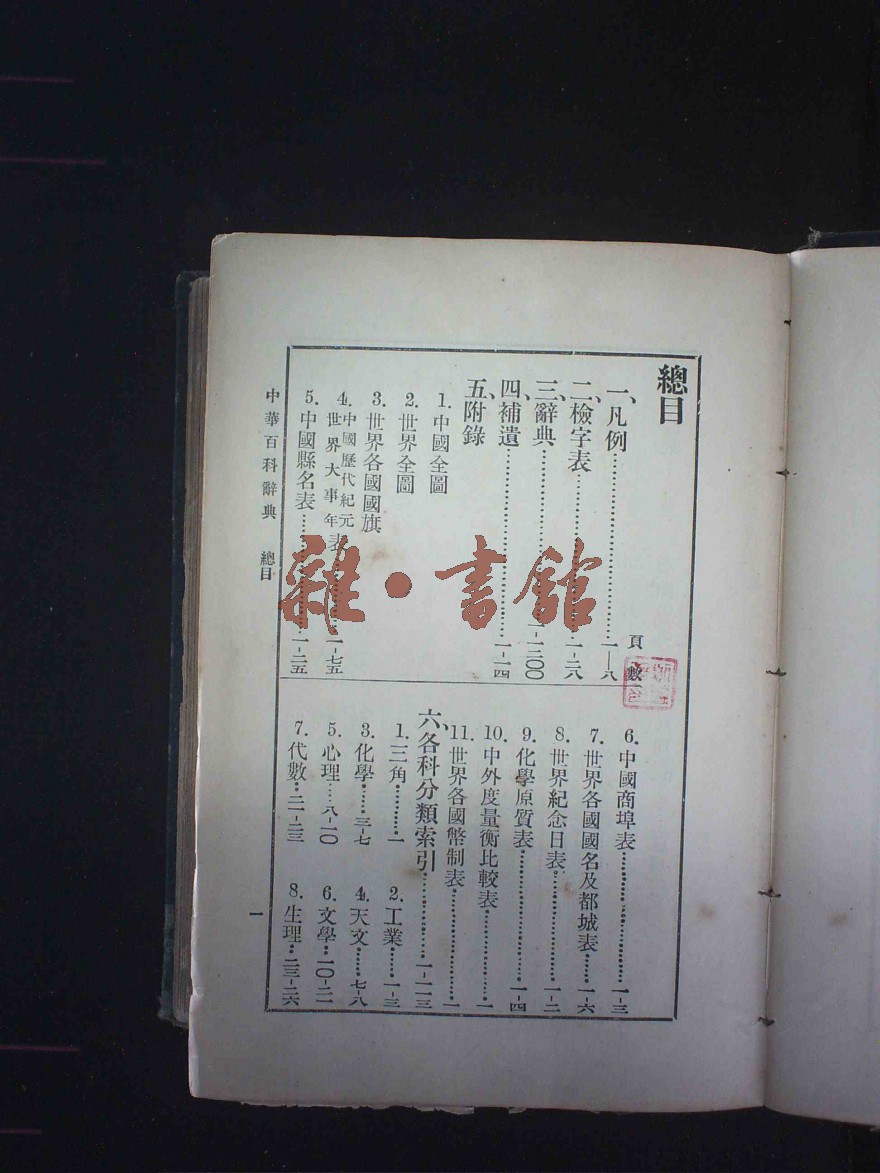 總目
頁數
一、凡例……一—八
二、檢字表……一-二八
三、辭典……一-一二〇〇
四、補遺……一-一四
五、附錄
1.中國全圖
2.世界全圖
3.世界各國國旗
4.中國歷代紀元世界大事年表……一-七五
5.中國縣名表……一-二五
6.中國商埠表……一-三
7.世界各國國名及都城表……一-六
8.世界紀念日表……一-二
9.化學原質表……一-四
10.中外度量衡比較表……一
11.世界各國幣制表……一
六、各科分類索引……一-一一三
1.三角……一
2.工業……一-三
3.化學……三-七
4.天文……七-八
5.心理……八-一〇
6.文學……一〇-二一
7.代數……二一-二三
8.生理……二三-二六
中華百科辭典 總目
一
雜·書館